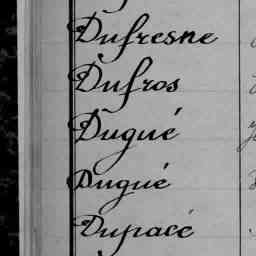 Dufresne
Dufros
Dugué
Dugué
Dupacé